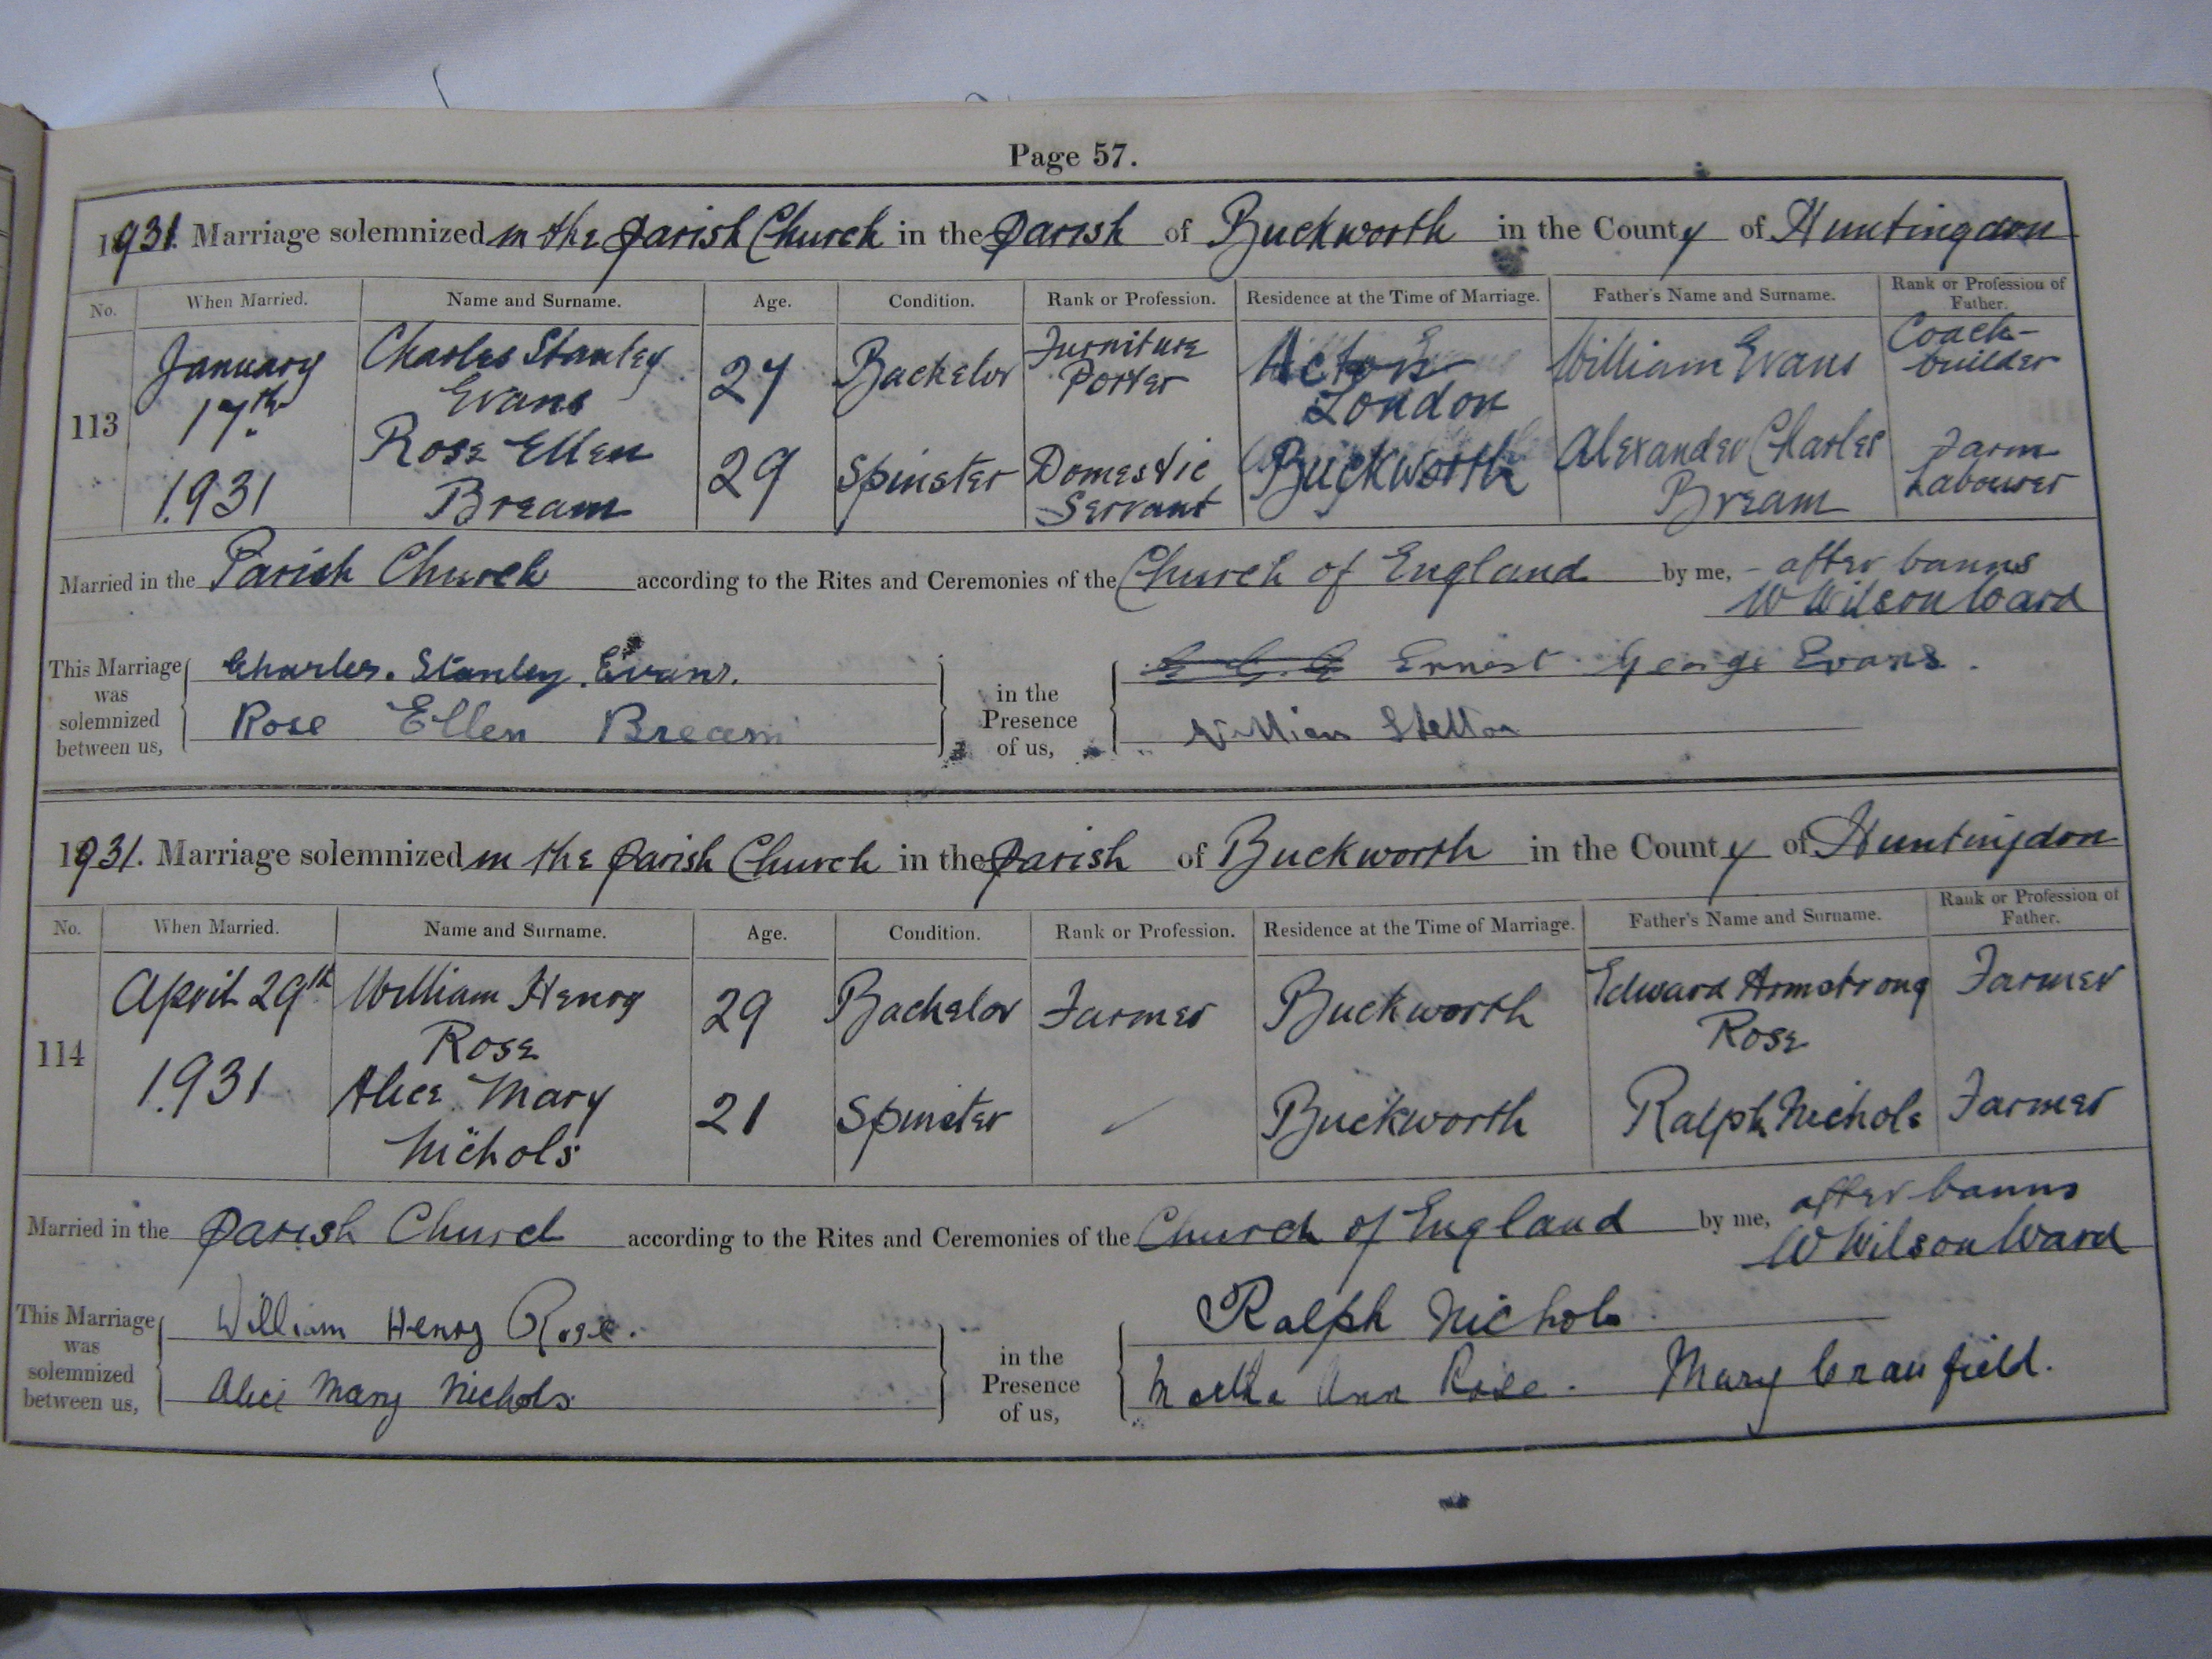 Page 57.
1931. Marriage solemnized in the parish Church in the parish of Buckworth in the County of Huntingdon
No. When Married. Name and Surname. Age. Condition. Rank or Profession. Residence at the Time of Marriage. Father's Name and Surname. Rank or Profession of Father.
113 January 17th 1931
Charles Stanley Evans 27 Bachelor Furniture Porter Acton London William Evans Coach-builder
Rose Ellen Bream 29 Spinster Domestic Servant Buckworth Alexander Charles Bream Farm Labourer
Married in the Parish Church according to the Rites and Ceremonies of the Church of England by me, - after banns
W Wilson Ward
This Marriage was solemnized between us,
Charles. Stanley. Evans.
Rose Ellen Bream
in the Presence of us,
Ernest George Evans.
William
1931. Marriage solemnized in the parish Church in the parish of Buckworth in the County of Huntingdon
No. When Married. Name and Surname. Age. Condition. Rank or Profession. Residence at the Time of Marriage. Father's Name and Surname. Rank or Profession of Father.
114 April 29th 1931
William Henry Rose 29 Bachelor Farmer Buckworth Edward Armstrong Rose Farmer
Alice Mary Nichols 21 Spinster Buckworth Ralph Nichols Farmer
Married in the parish Church according to the Rites and Ceremonies of the Church of England by me, after banns
W Wilson Ward
This Marriage was solemnized between us,
William Henry Rose.
Alice Mary Nichols
in the Presence of us,
Ralph Nichols
Martha Ann Rose. Mary Cranfield.